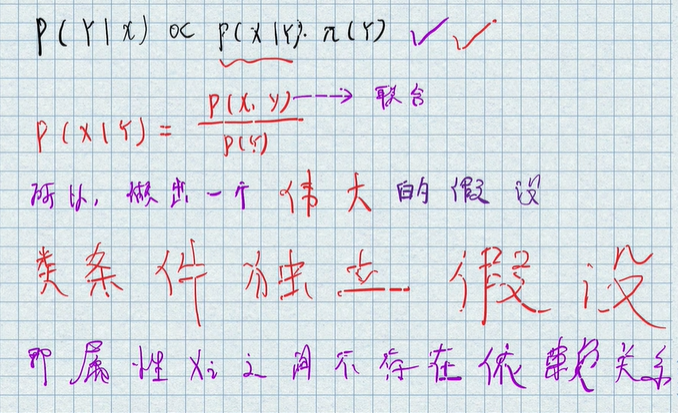 P(Y|x) ∝ P(X|Y)·π(Y) ✓ ✓
P(X|Y) = P(X, Y) / P(Y) ⇢ 联合
所以,做出一个伟大的假设
类条件独立假设
即属性Xi之间不存在依赖关系